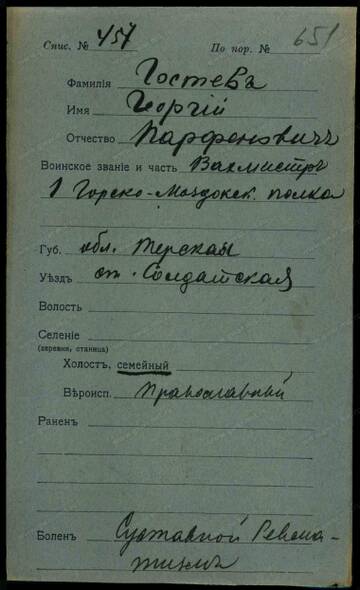 Спис. № 457 По пор. № 651
Фамилія Гостевъ
Имя Георгій
Отчество Парфеновичъ
Воинское званіе и часть Вахмистръ
1 Горско-Моздокск. полка
Губ. обл. Терская
Уѣздъ ст. Солдатская
Волость
Селеніе
(деревня, станица)
Холостъ, семейный
Вѣроисп. Православный
Раненъ
Боленъ Суставной Ревма-
тизмъ